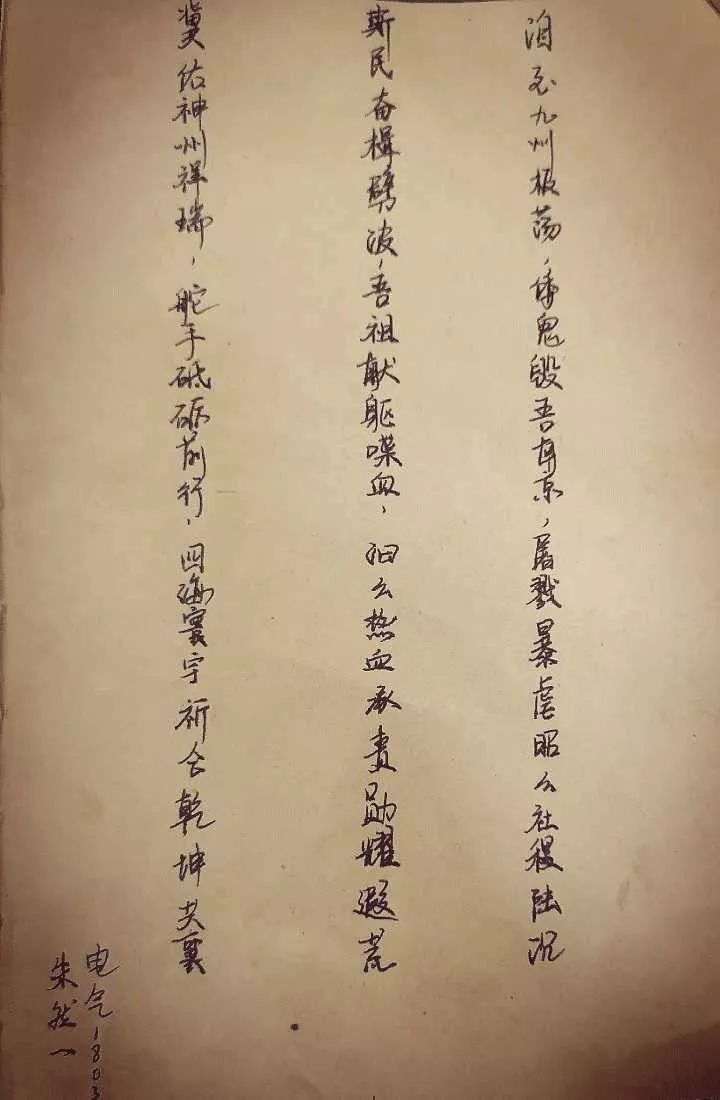 洎至九州板荡，倭鬼毁吾南京，屠戮暴虐昭公社稷陆沉
斯民奋楫劈波，吾祖献躯喋血，汩公热血承责勋耀遐荒
冀佑神州祥瑞，舵手砥砺前行，四海寰宇祈合乾坤共襄
电气1803
朱然一